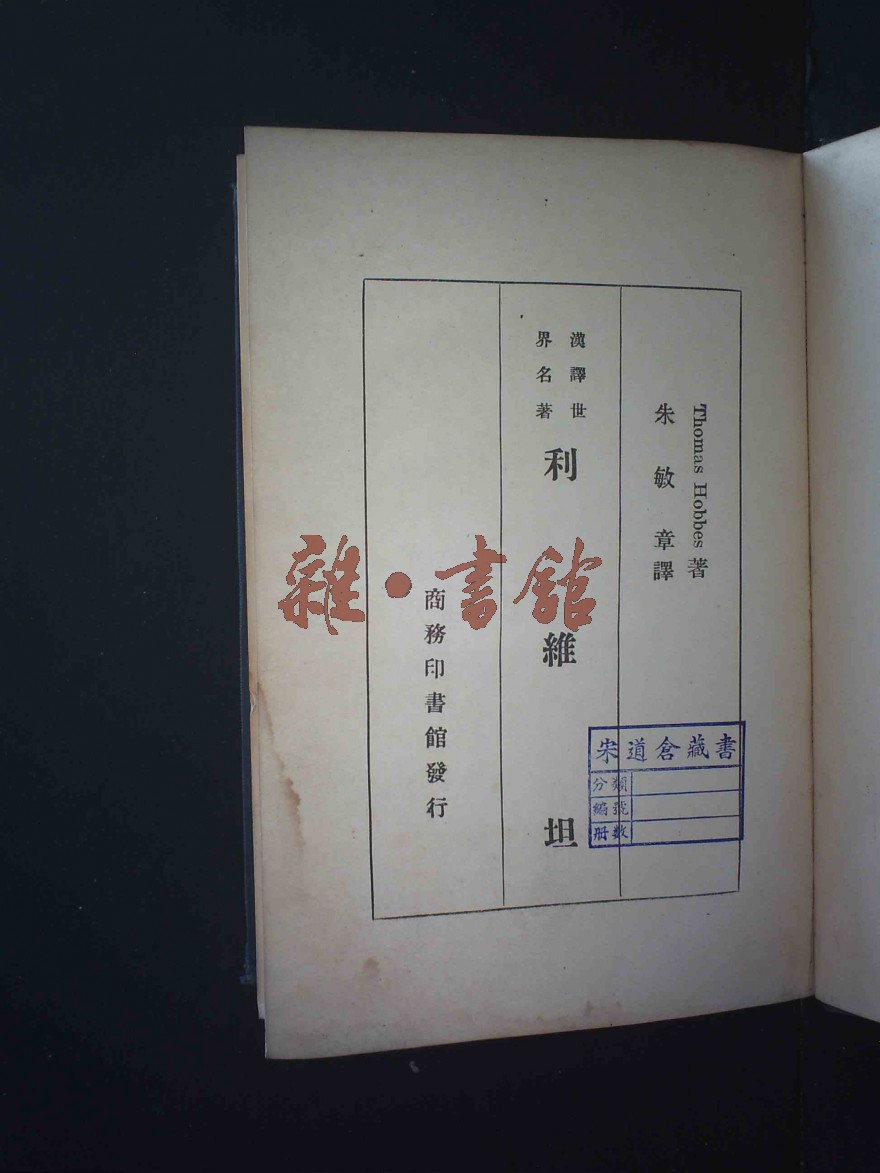 Thomas Hobbes 著
朱敏章譯
漢譯世
界名著
利維坦
商務印書館發行
雜·書館
宋道倉藏書
分類
編號
冊數